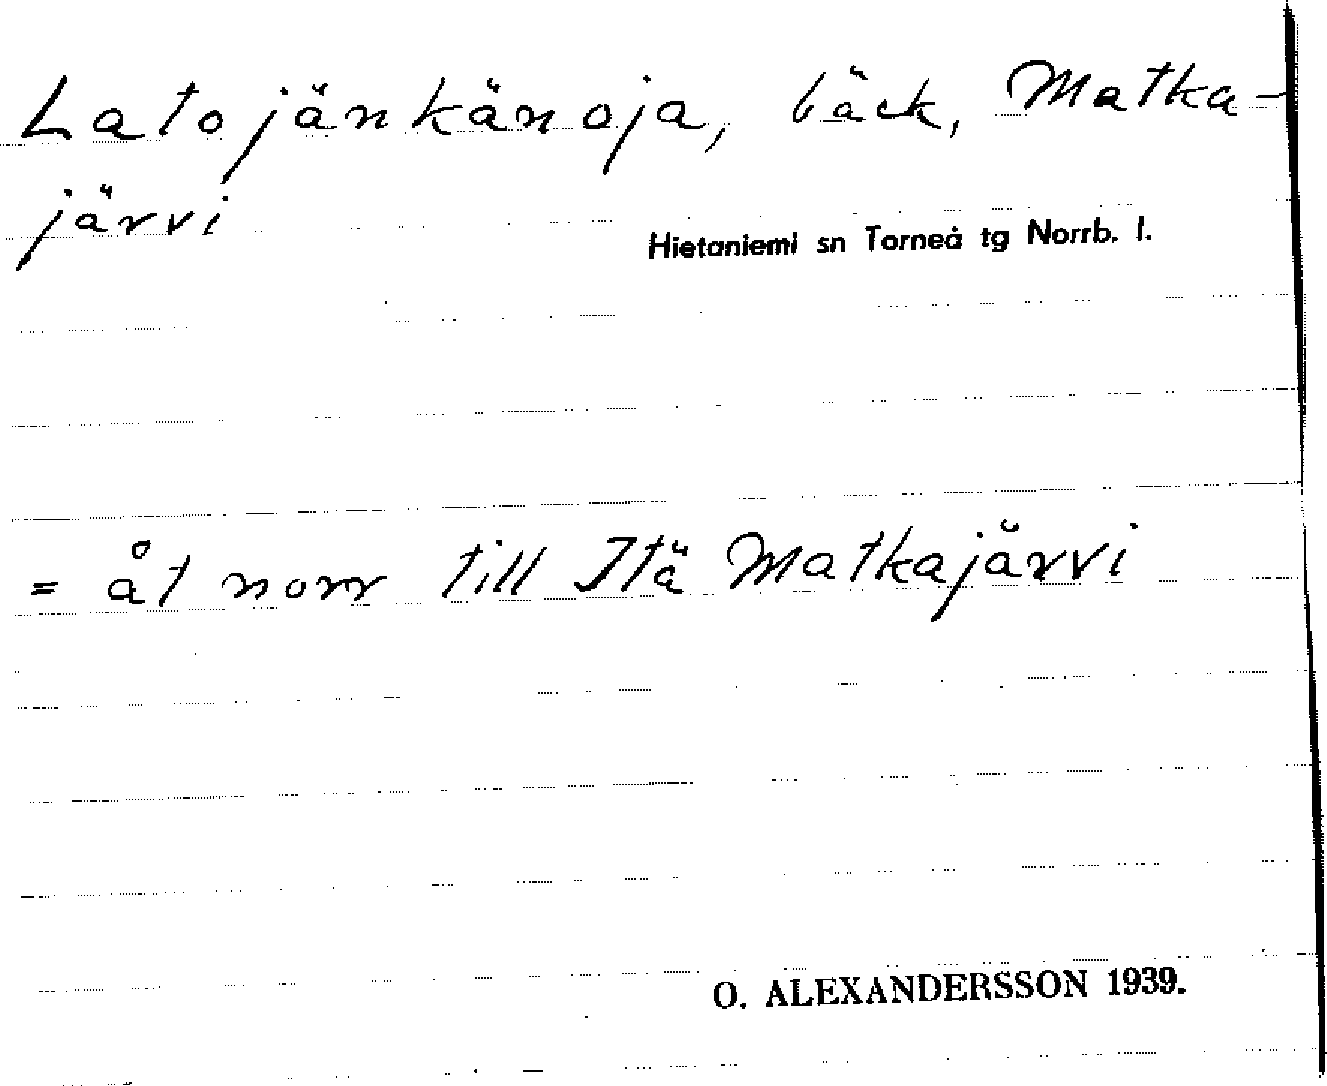 Latojänkänoja, bäck, Matka-
järvi
Hietaniemi sn Torneå tg Norrb. l.
= åt norr till Itä Matkajärvi
O. ALEXANDERSSON 1939.